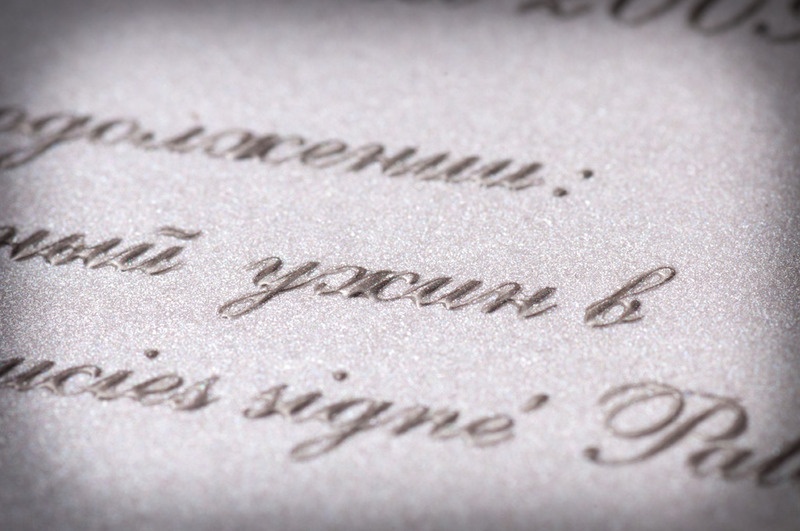 2009
одолжении:
ный ужин в
ncies signé Pal